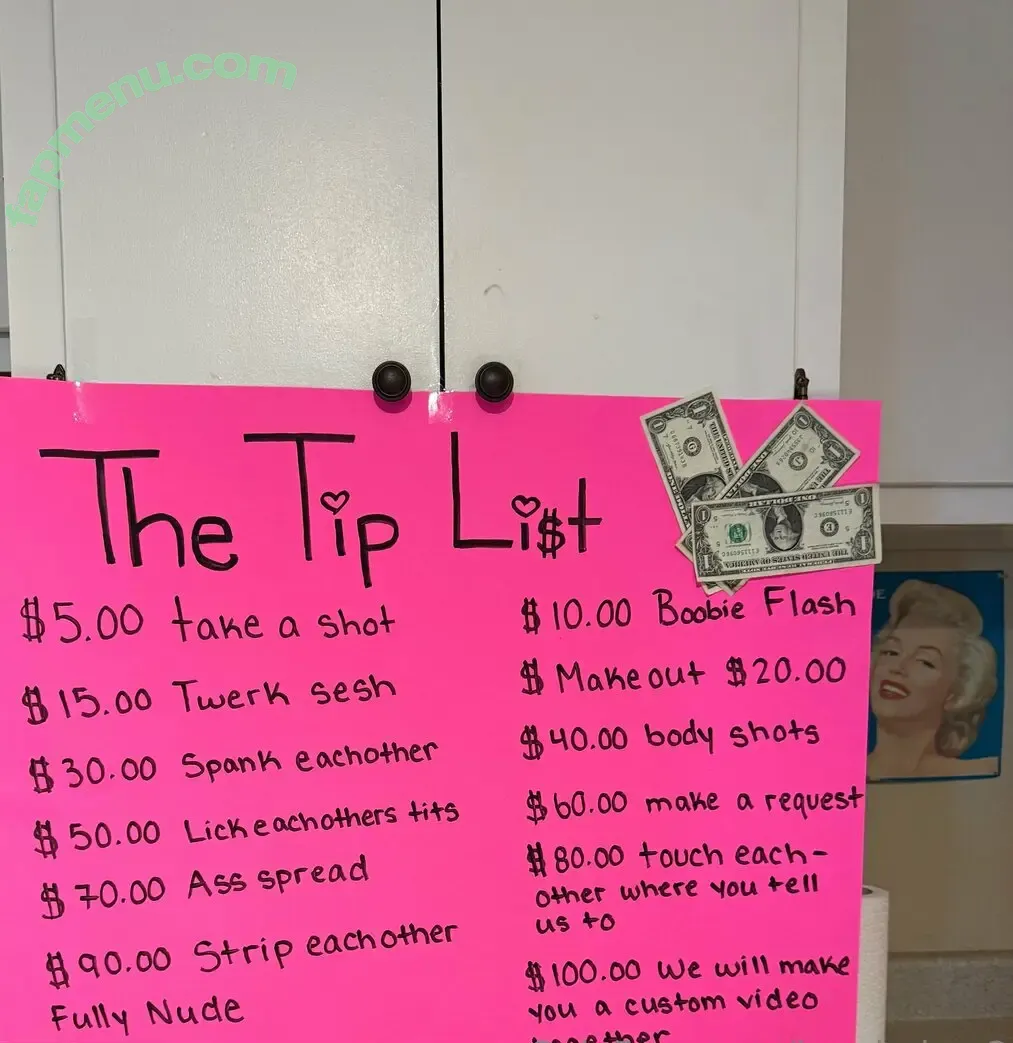 fapmenu.com
The Tip Li$t
$5.00 take a shot
$15.00 Twerk sesh
$30.00 Spank eachother
$50.00 Lick eachothers tits
$70.00 Ass spread
$90.00 Strip eachother
Fully Nude
$10.00 Boobie Flash
$ Makeout $20.00
$40.00 body shots
$60.00 make a request
$80.00 touch each-
other where you tell
us to
$100.00 We will make
you a custom video
together